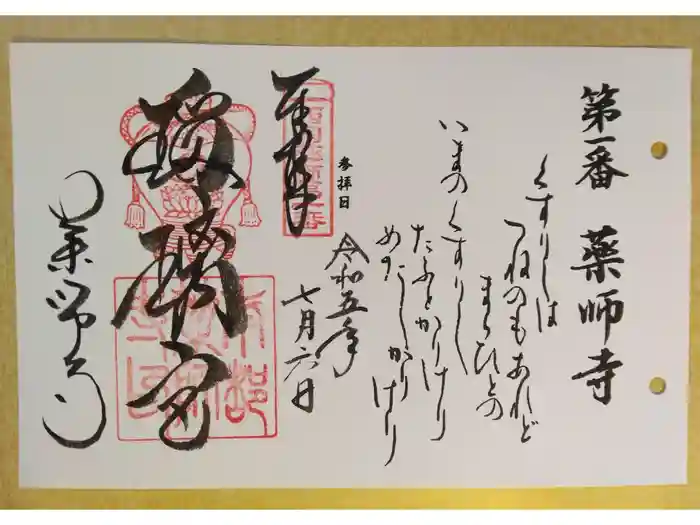 第一番 薬師寺
くすりしは
つねのもあれど
まらひとの
いまのくすりし
たふとかりけり
めだしかりけり
奉拝
参拝日
令和五年
七月六日
瑠璃宮
薬師寺